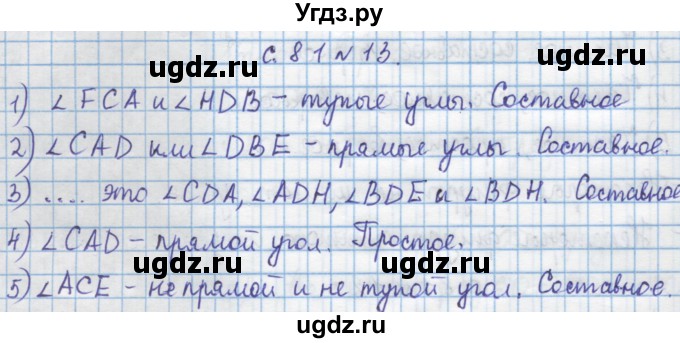 Угдз.ру
с. 81 № 13.
ugdz.ru ugdz.ru
1) ∠FCA и ∠HDB – тупые углы. Составное
ugdz.ru
2) ∠CAD или ∠DBE – прямые углы. Составное.
3) .... это ∠CDA, ∠ADH, ∠BDE и ∠BDH. Составное
ugdz.ru ugdz.ru
4) ∠CAD – прямой угол. Простое.
ugdz.ru
5) ∠ACE – не прямой и не тупой угол. Составное.
ugdz.ru
Угдз.ру